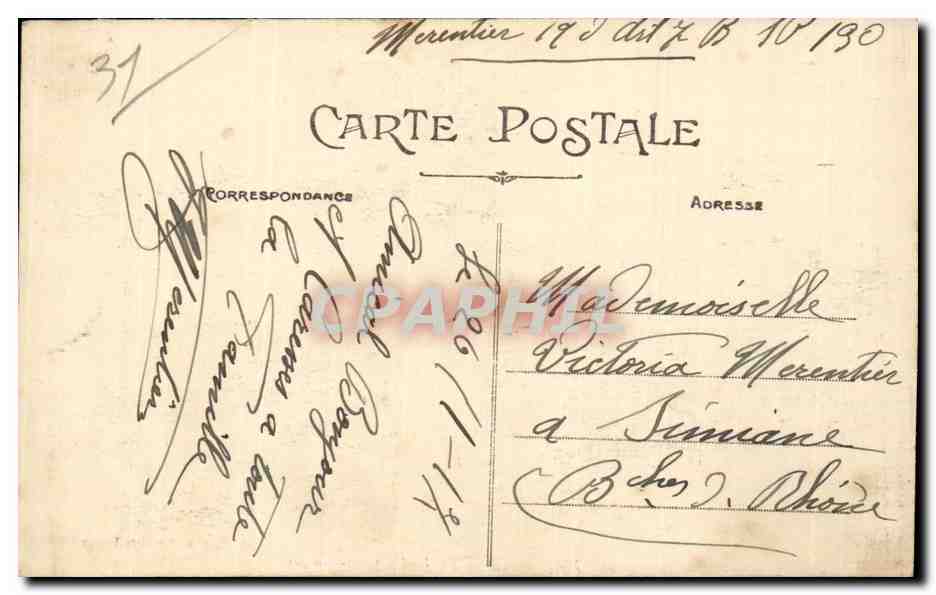 Merentier 19 d Art 7 B 10 190
31
CARTE POSTALE
CORRESPONDANCE
ADRESSE
Le 26 11-14
Amical Bonjour
et Caresses a toute
la Famille
Merentier
Mademoiselle
Victoria Merentier
a Simiane
Bches d. Rhône
CPAPHIL